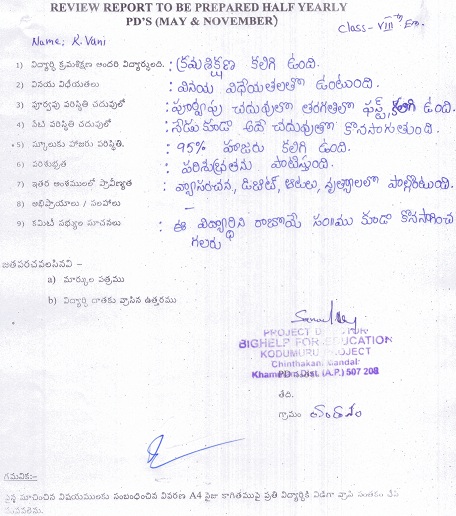 REVIEW REPORT TO BE PREPARED HALF YEARLY
PD'S (MAY & NOVEMBER)
Class - VIII th Em.
Name: K. Vani
1) విద్యార్థి క్రమశిక్షణ అందరి విద్యార్థులది. : క్రమశిక్షణ కలిగి ఉంది.
2) వినయ విధేయతలు : వినయ విధేయతలతో ఉంటుంది.
3) పూర్వపు పరిస్థితి చదువులో : పూర్వపు చదువులో తరగతిలో ఫస్ట్ కలిగి ఉంది.
4) నేటి పరిస్థితి చదువులో : నేడు కూడా అదే చదువుతో కొనసాగుతుంది.
5) స్కూలుకు హాజరు పరిస్థితి. : 95% హాజరు కలిగి ఉంది.
6) పరిశుభ్రత : పరిశుభ్రతను పాటిస్తుంది.
7) ఇతర అంశములలో ప్రావీణ్యత : వ్యాసరచన, డిబేట్, ఆటలు, నృత్యాలలో పాల్గొంటుంది.
8) అభిప్రాయాలు / సలహాలు :
9) కమిటీ సభ్యుల సూచనలు : ఈ విద్యార్థిని రాబోయే సం॥ము కూడా కొనసాగించ
గలరు
జతపరచవలసినవి -
a) మార్కుల పత్రము
b) విద్యార్థి దాతకు వ్రాసిన ఉత్తరము
PROJECT DIRECTOR
BIGHELP FOR EDUCATION
KODUMURU PROJECT
Chinthakani Mandal
Khammam Dist. (A.P.) 507 208
తేది.
గ్రామం
గమనిక:-
పైన సూచించిన విషయములకు సంబంధించిన వివరణ A4 సైజు కాగితముపై ప్రతి విద్యార్థికి విడిగా వ్రాసి సంతకం చేసి